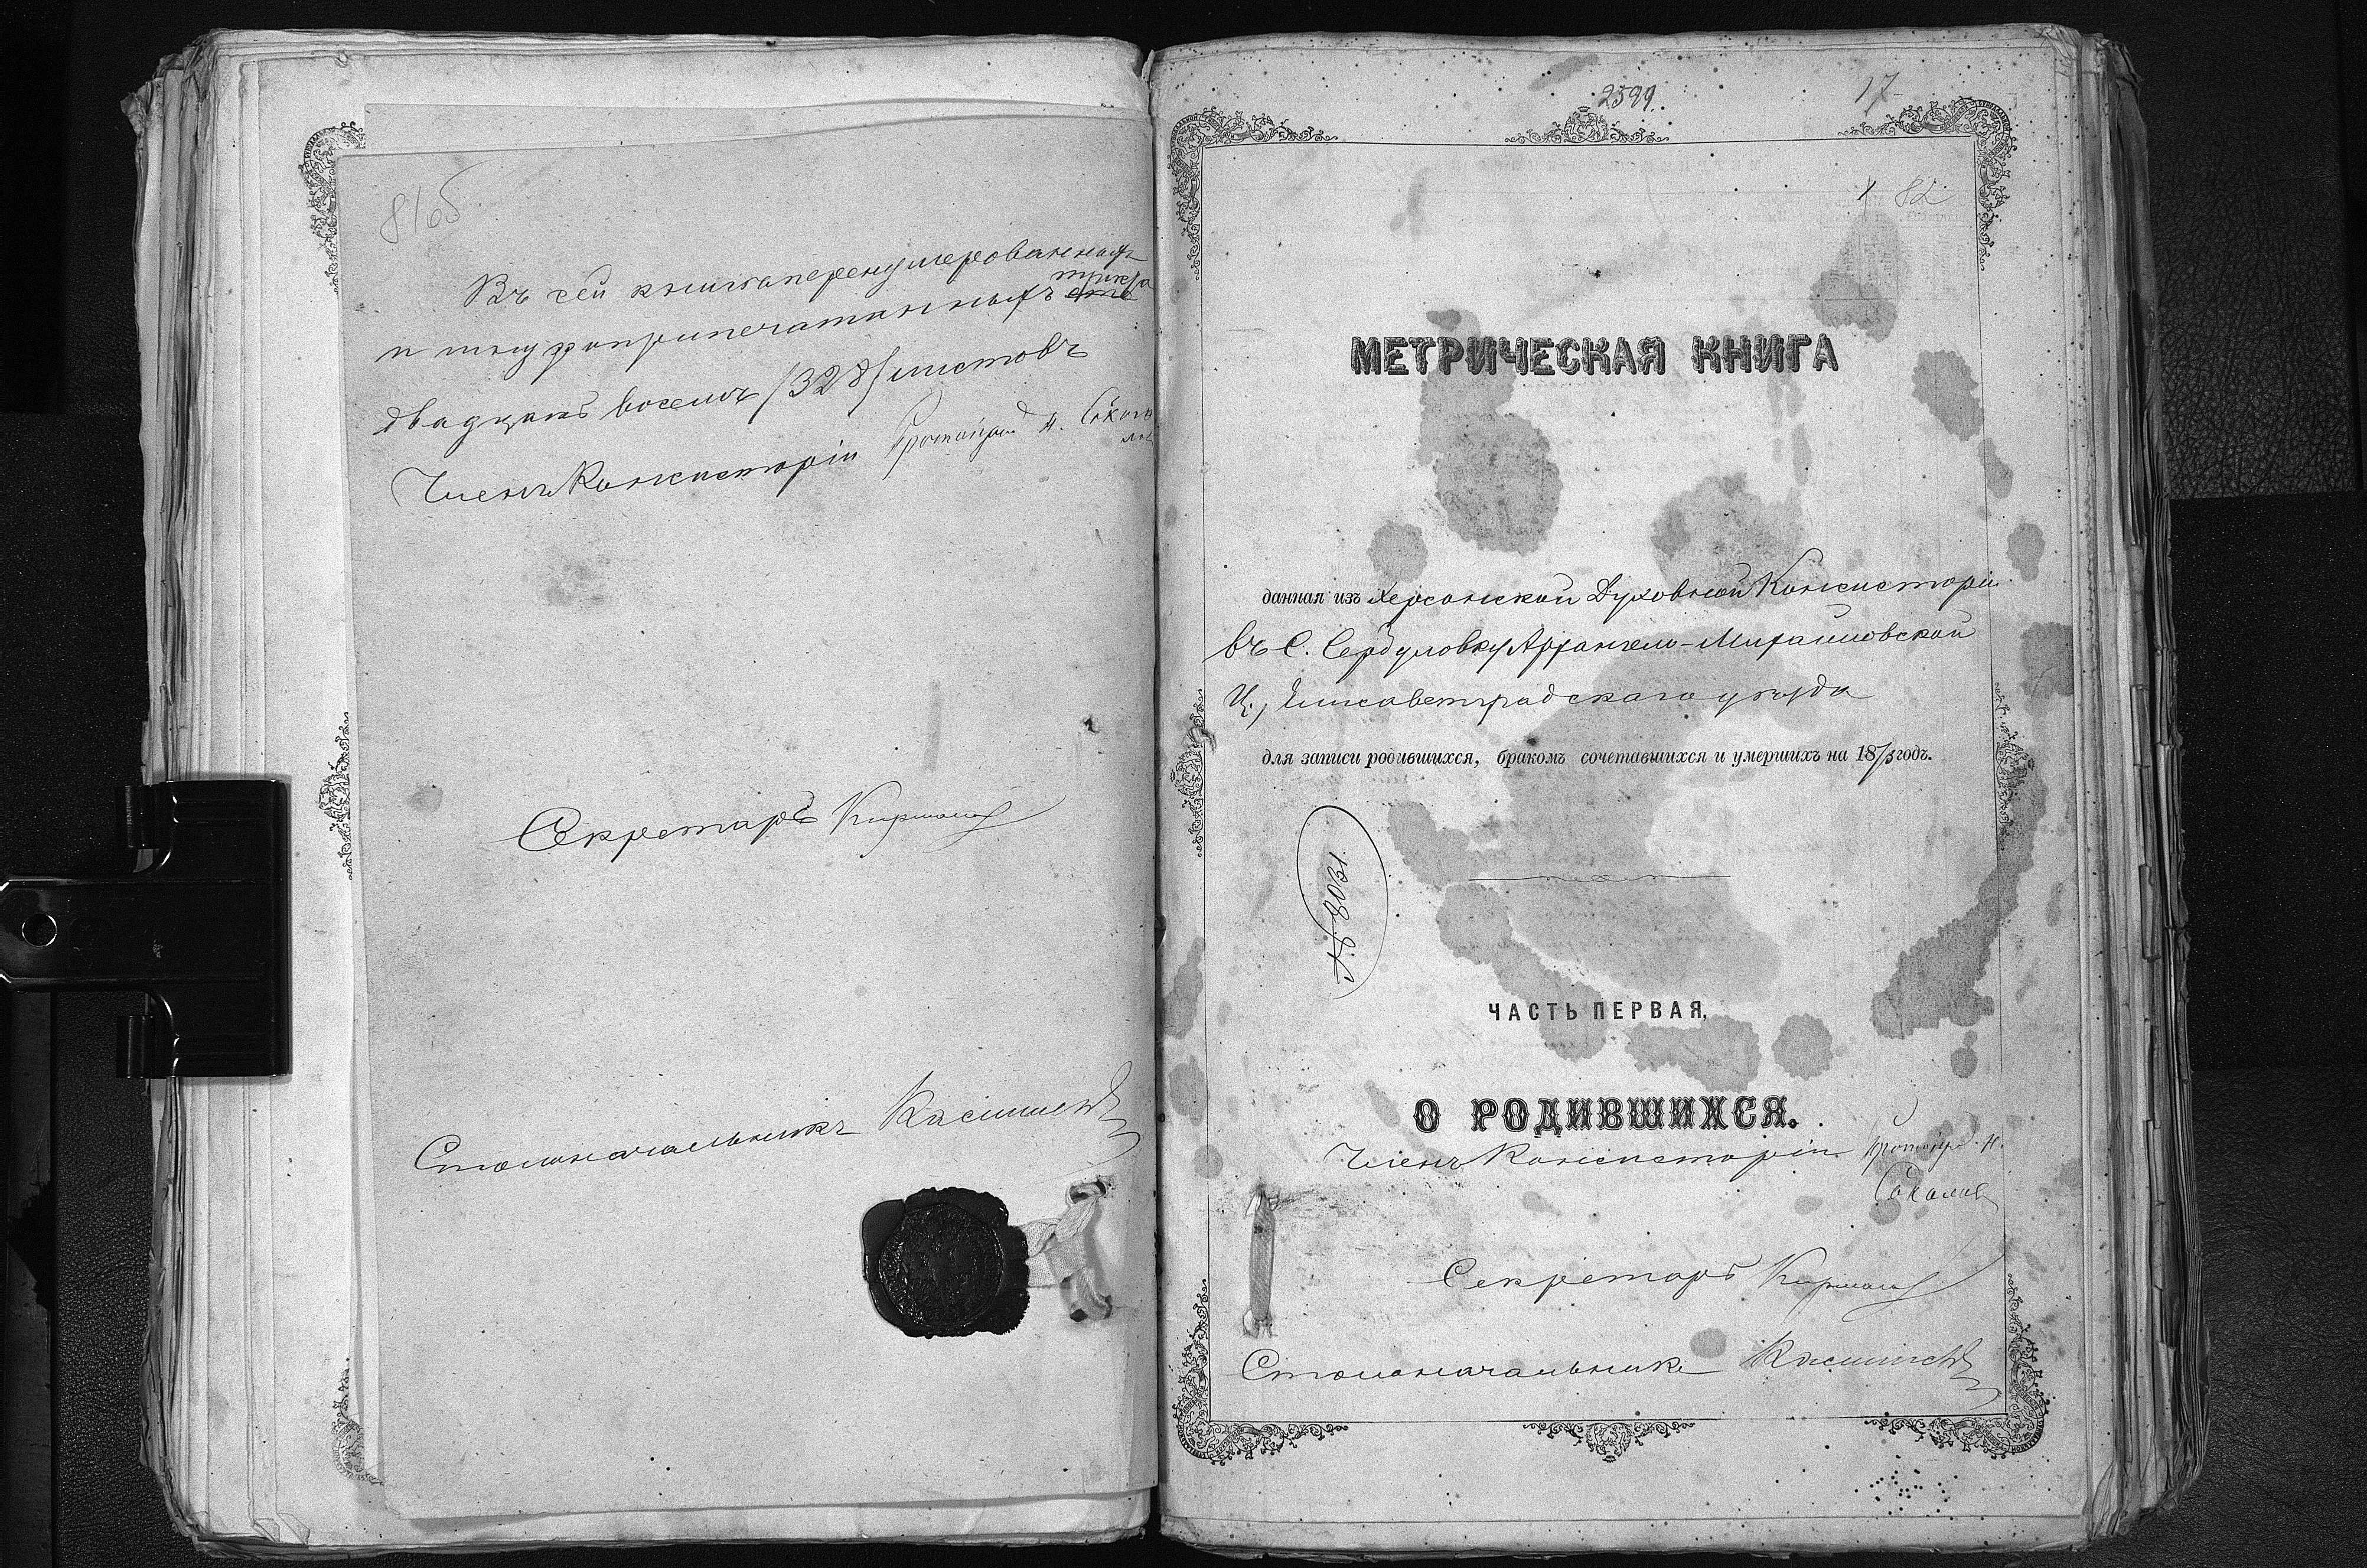 81об
Въ сей книгѣ перенумерованныхъ
и шнуроприпечатанныхъ триста
двадцать восемь /328/ листовъ
Членъ Консисторіи Протоіерей Н. Соколов
Секретарь
Столоначальникъ
2599. 17
82
МЕТРИЧЕСКАЯ КНИГА
данная изъ Херсонской Духовной Консисторіи
въ С. Сербуловку Архангело-Михайловской
Ц., Елисаветградскаго уѣзда
для записи родившихся, бракомъ сочетавшихся и умершихъ на 1875 годъ.
№ 8031.
ЧАСТЬ ПЕРВАЯ,
О РОДИВШИХСЯ.
Членъ Консисторіи Протоіерей Н.
Соколов
Секретарь
Столоначальникъ